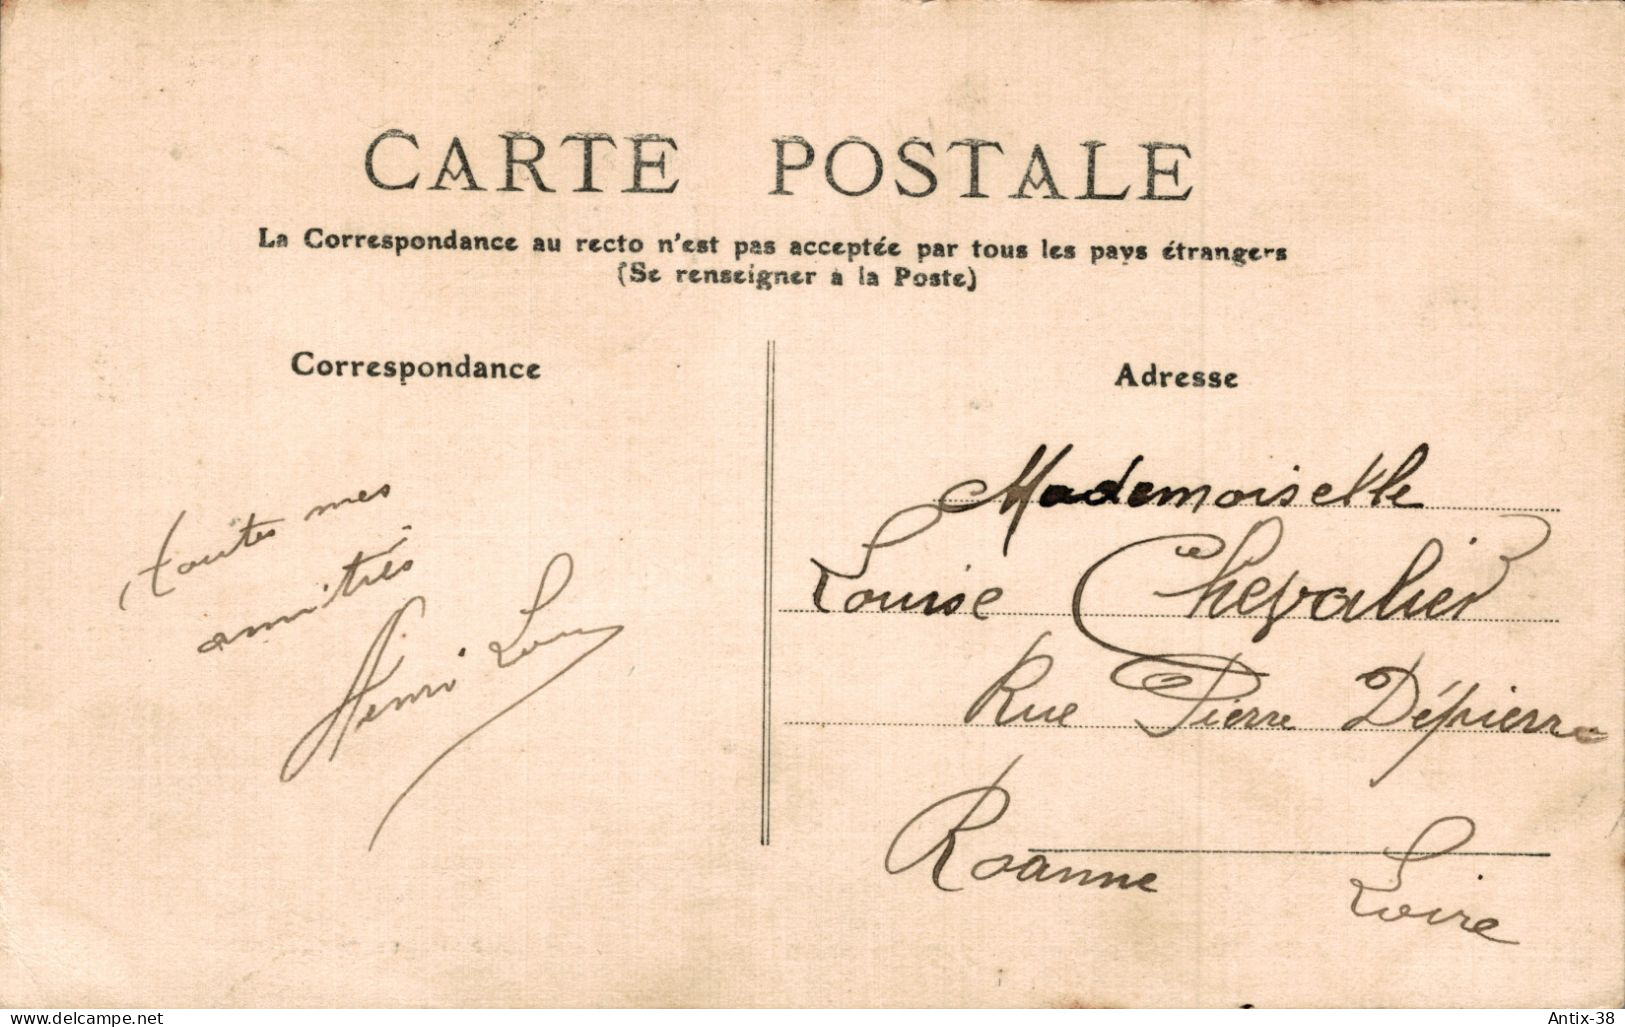 CARTE POSTALE
La Correspondance au recto n'est pas acceptée par tous les pays étrangers
(Se renseigner à la Poste)
Correspondance
toutes mes
amitiés
Henri
Adresse
Mademoiselle
Louise Chevalier
Rue Pierre Dépierre
Roanne Loire
www.delcampe.net
Antix-38